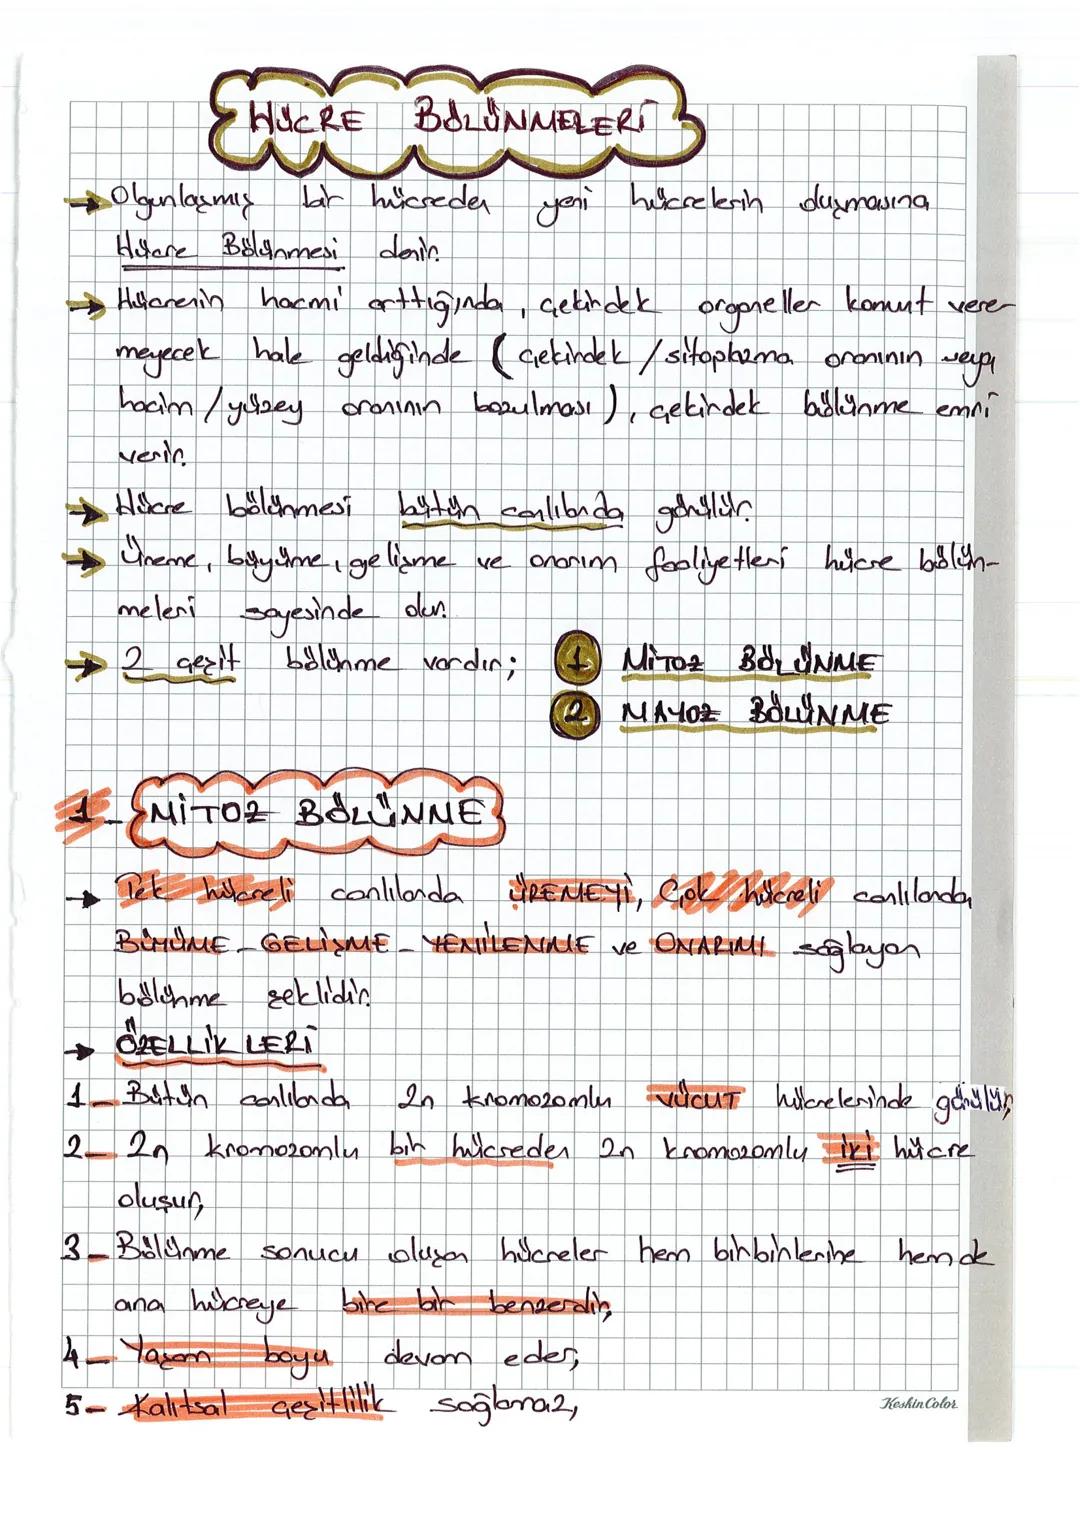 HÜCRE BÖLÜNMELERİ
→ Olgunlaşmış bir hücreden yeni hücrelerin oluşmasına
Hücre Bölünmesi denir.
→ Hücrenin hacmi arttığında, çekirdek organeller komut vere-
meyecek hale geldiğinde (çekirdek / sitoplazma oranının veya
hacim / yüzey oranının bozulması), çekirdek bölünme emri
verir.
→ Hücre bölünmesi bütün canlılarda görülür.
→ Üreme, büyüme, gelişme ve onarım faaliyetleri hücre bölün-
meleri sayesinde olur.
→ 2 çeşit bölünme vardır; 1 MİTOZ BÖLÜNME
2 MAYOZ BÖLÜNME
1- MİTOZ BÖLÜNME
→ Tek hücreli canlılarda ÜREMEYİ, Çok hücreli canlılarda,
BÜYÜME - GELİŞME - YENİLENME ve ONARIMI sağlayan
bölünme şeklidir.
→ ÖZELLİKLERİ
1- Bütün canlılarda 2n kromozomlu VÜCUT hücrelerinde görülür,
2- 2n kromozomlu bir hücreden 2n kromozomlu iki hücre
oluşur,
3- Bölünme sonucu oluşan hücreler hem birbirlerine hem de
ana hücreye bire bir benzerdir,
4- Yaşam boyu devam eder,
5- Kalıtsal çeşitlilik sağlamaz,
Keskin Color